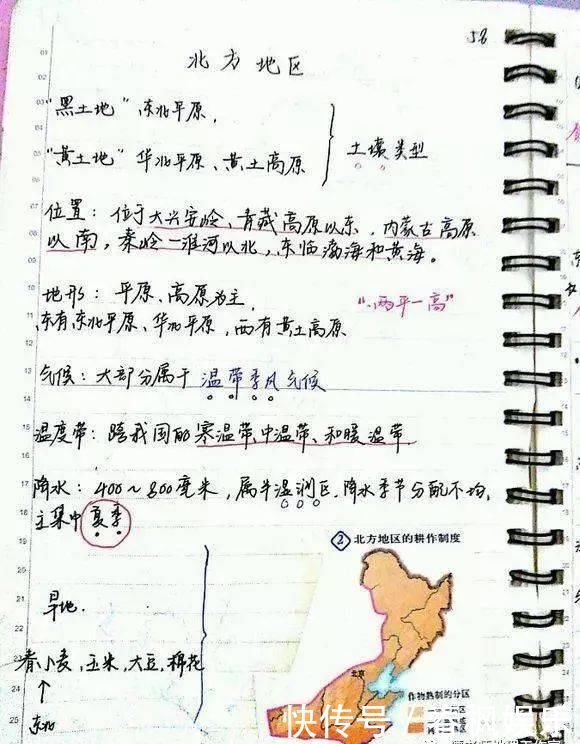 58
北方地区
"黑土地" 东北平原,
"黄土地" 华北平原、黄土高原
土壤类型
位置：位于大兴安岭、青藏高原以东，内蒙古高原
以南，秦岭－淮河以北，东临渤海和黄海。
地形：平原、高原为主，
"两平一高"
东有东北平原、华北平原，西有黄土高原
气候：大部分属于温带季风气候
温度带：跨我国的寒温带、中温带、和暖温带
降水：400～800毫米，属半湿润区，降水季节分配不均，
主集中夏季
② 北方地区的耕作制度
北京
旱地.
春小麦，玉米，大豆，棉花
↑
东北
作物熟制的分区
快传号/